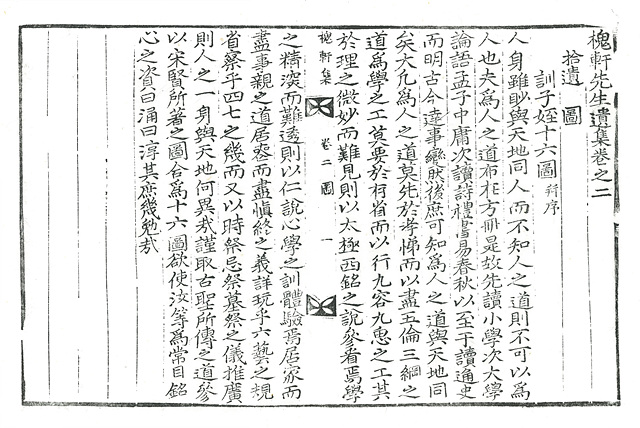 槐軒先生遺集卷之二
拾遺 圖
訓子姪十六圖 幷序
人身雖眇與天地同人而不知人之道則不可以爲
人也夫爲人之道布在方冊是故先讀小學次大學
論語孟子中庸次讀詩禮書易春秋以至于讀通史
而明古今達事變然後庶可知爲人之道與天地同
矣大凡爲人之道莫先於孝悌而以盡五倫三綱之
道爲學之工莫要於存省而以行九容九思之工其
於理之微妙而難見則以太極西銘之說參看焉學
槐軒集 卷二 圖 一
之精深而難透則以仁說心學之訓體驗焉居家而
盡事親之道居喪而盡愼終之義詳玩乎六藝之規
省察乎四七之幾而又以時祭忌祭墓祭之儀推廣
則人之一身與天地何異哉謹取古聖所傳之道參
以宋賢所著之圖合爲十六圖欲使汝等爲常目銘
心之資曰涌曰淳其庶幾勉哉